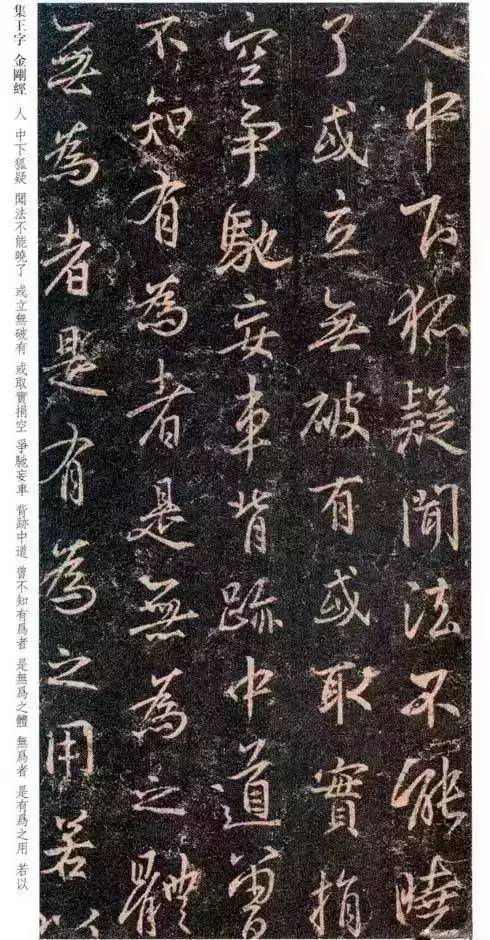 人中下狐疑聞法不能曉
了或立無破有或取實捐
空爭馳妄車背跡中道曾
不知有為者是無為之體
無為者是有為之用若以
集王字 金剛經 人 中下狐疑 聞法不能曉了 或立無破有 或取實捐空 爭馳妄車 背跡中道 曾不知有爲者 是無爲之體 無爲者 是有爲之用 若以